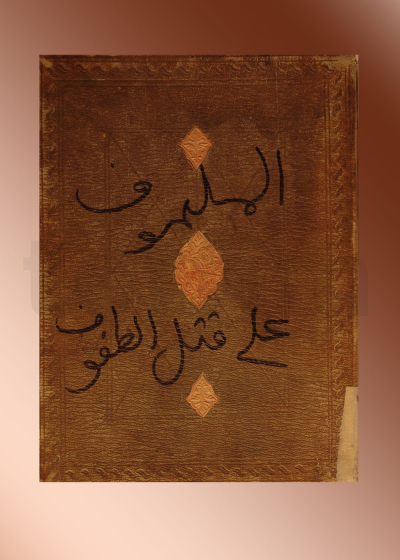 الملهوف
على قتلى الطفوف